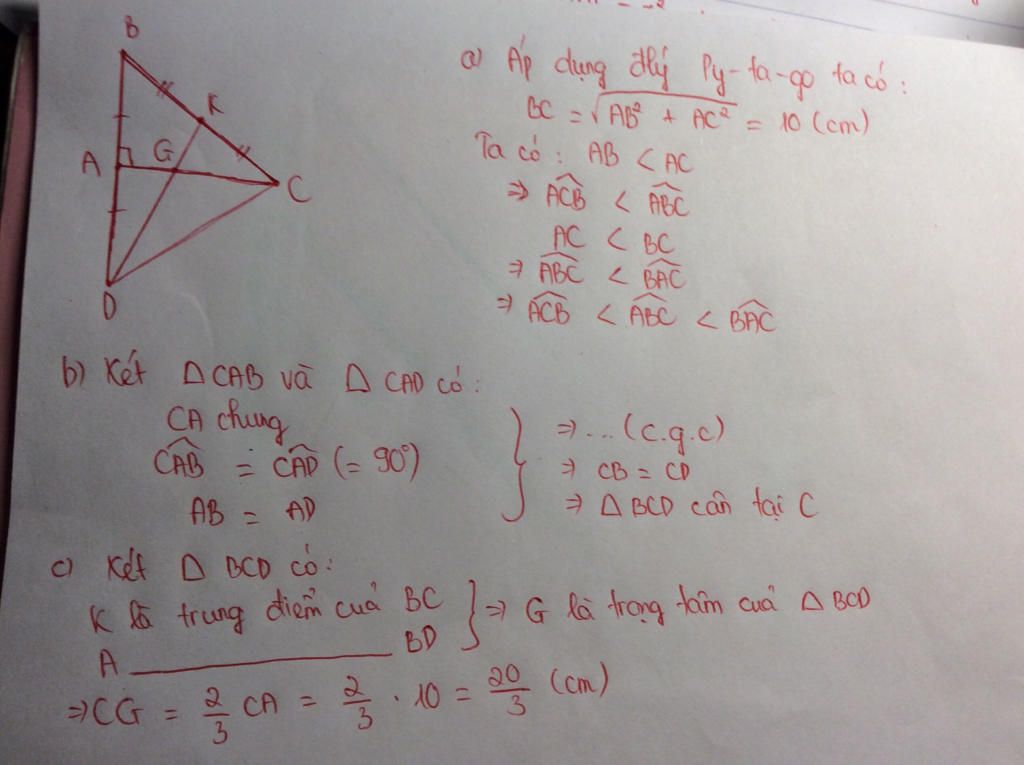 B
K
A
G
C
D
a) Áp dụng đlý Py-ta-go ta có:
BC = √(AB² + AC²) = 10 (cm)
Ta có: AB < AC
⇒ \widehat{ACB} < \widehat{ABC}
AC < BC
⇒ \widehat{ABC} < \widehat{BAC}
⇒ \widehat{ACB} < \widehat{ABC} < \widehat{BAC}
b) Két Δ CAB và Δ CAD có:
CA chung
\widehat{CAB} = \widehat{CAD} (= 90°)
AB = AD
} ⇒ ... (c.g.c)
⇒ CB = CD
⇒ Δ BCD cân tại C
c) Két Δ BCD có:
K là trung điểm cuả BC
A ________ BD
} ⇒ G là trọng tâm cuả Δ BCD
⇒ CG = 2/3 CA = 2/3 · 10 = 20/3 (cm)